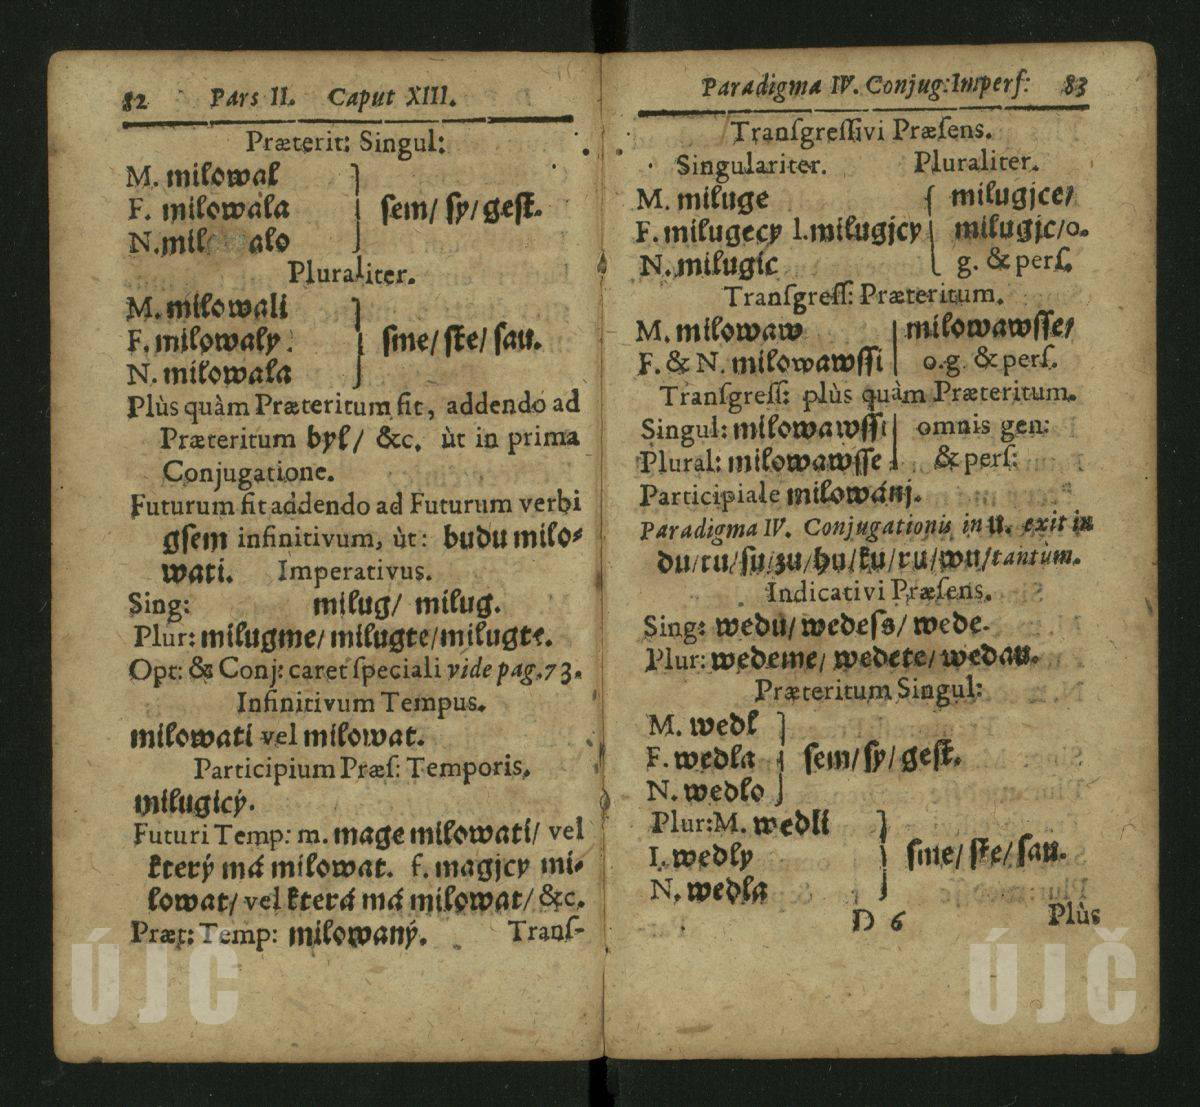 82 Pars II. Caput XIII.
Præterit: Singul:
M. miłowal
F. miłowała } sem/ sy/ gest.
N. mil alo
Pluraliter.
M. miłowali
F. miłowały } sme/ ste/ sau.
N. miłowała
Plùs quàm Præteritum fit, addendo ad
Præteritum był/ &c. ùt in prima
Conjugatione.
Futurum fit addendo ad Futurum verbi
gsem infinitivum, ùt: budu miło⸗
wati. Imperativus.
Sing: miług/ miług.
Plur: miługme/ miługte/ miługte.
Opt: & Conj: caret ſpeciali vide pag. 73.
Infinitivum Tempus.
miłowati vel miłowat.
Participium Præſ: Temporis.
miługicý.
Futuri Temp: m. mage miłowati/ vel
který má miłowat. f. magjcy mi⸗
łowat/ vel která má miłowat/ &c.
Præt: Temp: miłowaný. Tranſ-
Paradigma IV. Conjug: Imperf: 83
Tranſgreſſivi Præſens.
Singulariter. Pluraliter.
M. miługe { miługjce/
F. miługecy l. miługjcy miługjc/ o.
N. miługíc g. & perſ.
Tranſgreſſ: Præteritum.
M. miłowaw | miłowawſſe/
F. & N. miłowawſſi o. g. & perſ.
Tranſgreſſ: plùs quàm Præteritum.
Singul: miłowawſſi | omnis gen:
Plural: miłowawſſe & perſ:
Participiale miłowánj.
Paradigma IV. Conjugationis in u. exit in
du/ tu/ ſu/ zu/ hu/ ku/ ru/ wu/ tantùm.
Indicativi Præſens.
Sing: wedu/ wedeſs/ wede.
Plur: wedeme/ wedete/ wedau.
Præteritum Singul:
M. wedł
F. wedła } ſem/ ſy/ geſt.
N. wedło
Plur: M. wedli
F. wedły } ſme/ ſte/ ſau.
N. wedła
D 6 Plùs
ÚJČ ÚJČ